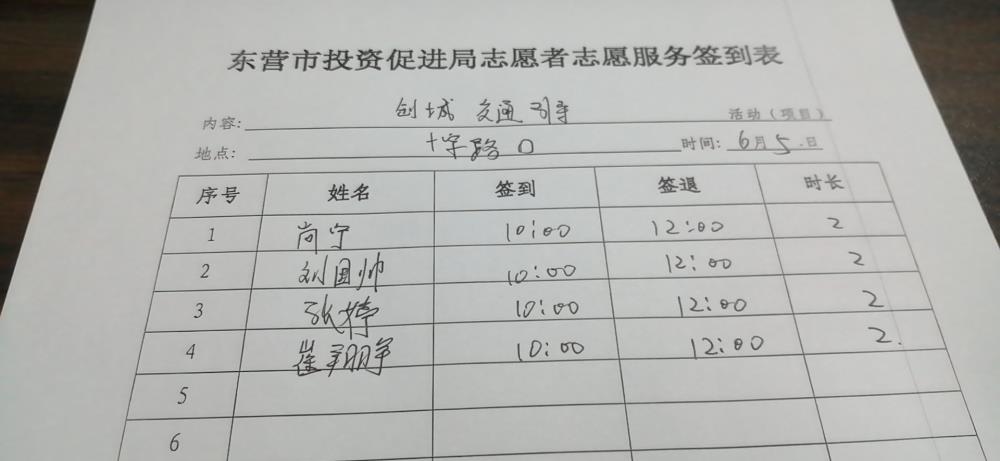 东营市投资促进局志愿者志愿服务签到表
内容: 创城 交通引导 活动（项目）
地点: 十字路口 时间: 6月5.日
序号 姓名 签到 签退 时长
1 尚宁 10:00 12:00 2
2 刘国帅 10:00 12:00 2
3 张婷 10:00 12:00 2
4 崔 10:00 12:00 2.
5
6